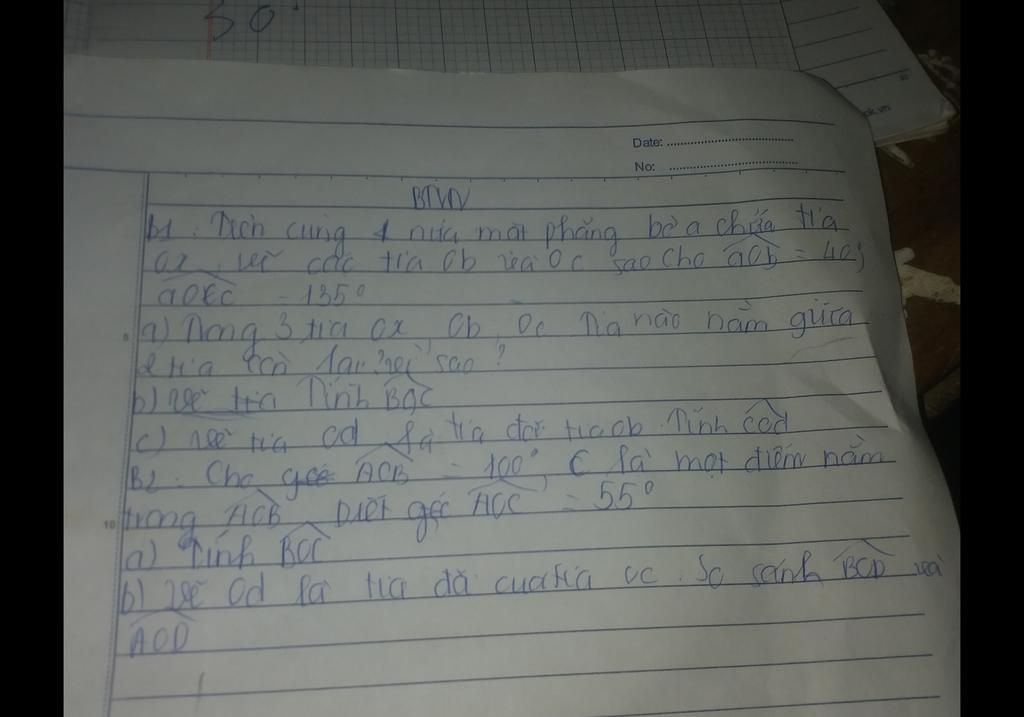 30
ok.vn
Date:
No:
BTVN
b1. Trên cùng 1 nửa mặt phẳng bờ a chứa tia
Ox, vẽ các tia Ob và Oc sao cho aOb = 40;
aOc = 135°
5
a) Trong 3 tia Ox, Ob, Oc Tia nào nằm giữa
2 tia còn lại? vì sao?
b) vẽ tia Tính BOC
c) vẽ tia Od là tia đối tia Ob. Tính cOd
B2. Cho góc AOB = 100°, C là một điểm nằm
10
trong AOB biết góc AOC = 55°
a) Tính BOC
b) vẽ Od là tia đã của tia OC. So sánh BOD và
AOD